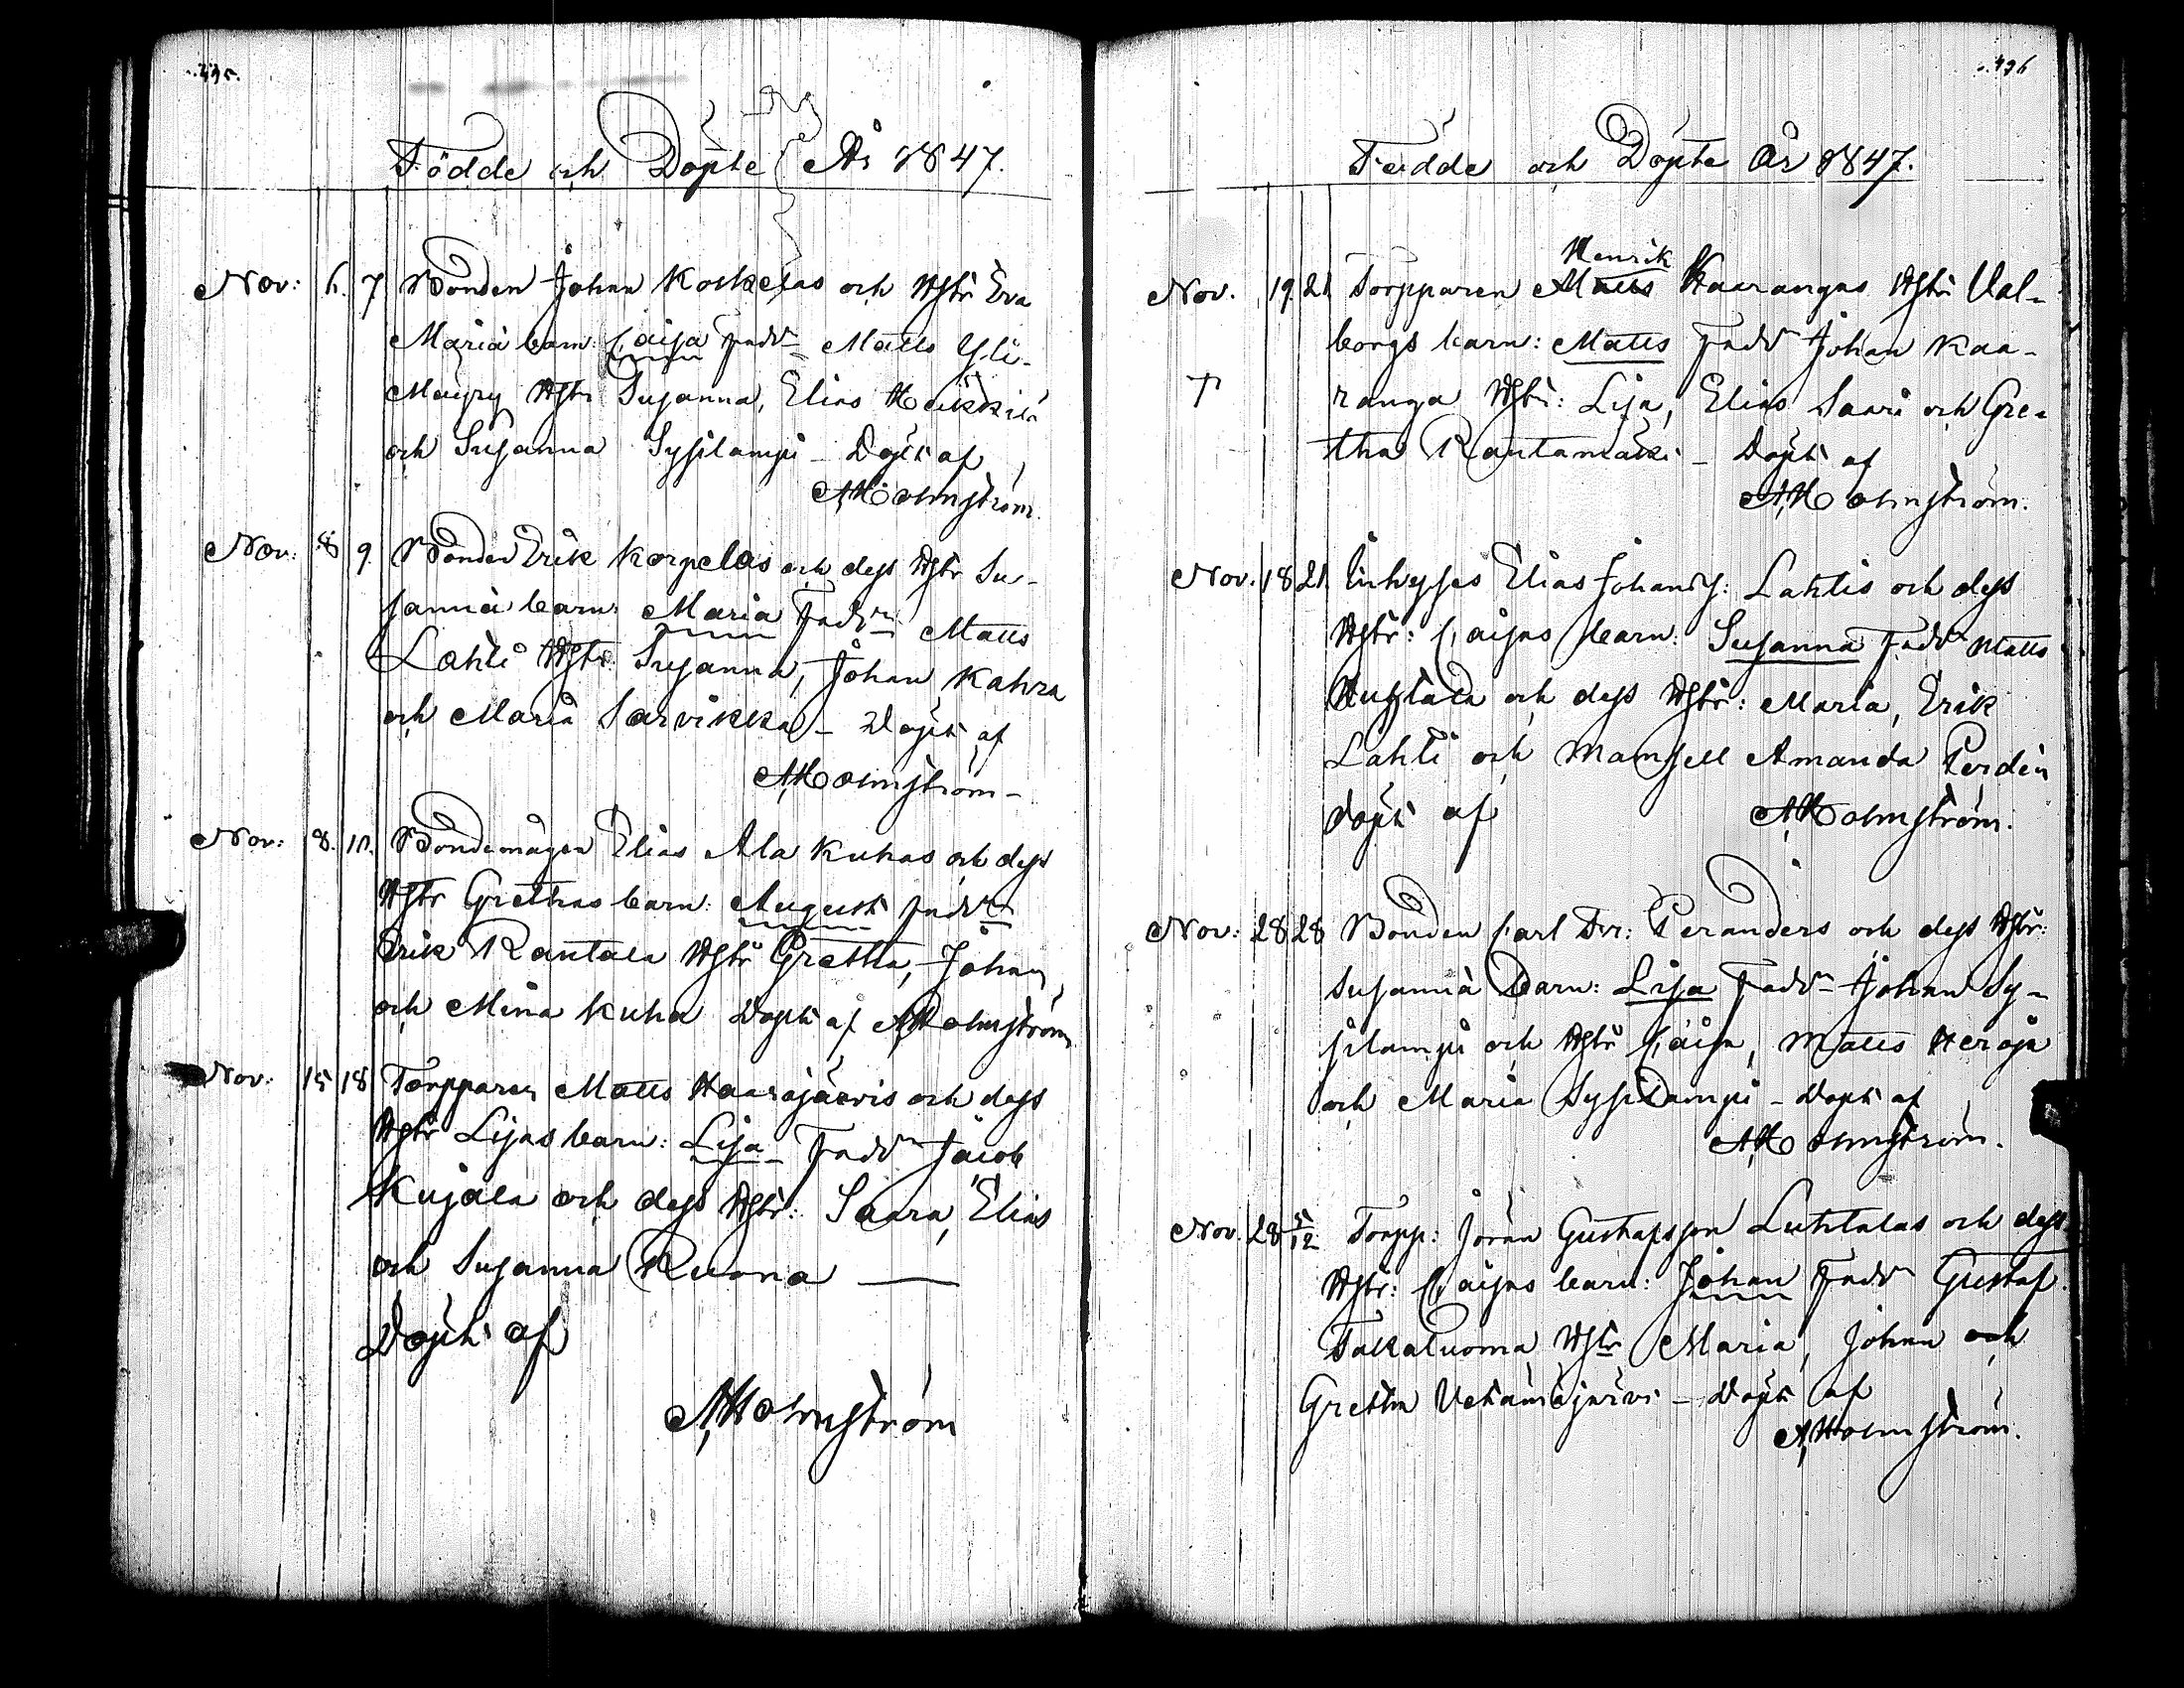 495.
Födde och Döpte År 1847.
Nov: 6. 7 Bonden Johan Koskelas och Hstr Eva
Mariä barn: Caisa Fadd Matts Yli-
Mäyry Hstr Susanna, Elias Heikkilä
och Susanna Sysilampi – Döpt af
A Holmström.
Nov: 8 9. Bonden Erik Korpelas och dess Hstr Su-
sannä barn: Maria Fadd Matts
Lahti Hstr Susanna, Johan Kahra
och Maria Sarvikka – Döpt af
A Holmström –
Nov: 8. 10. Bondemågen Elias Ala Kuhas och dess
Hstr Grethas barn: August Fadd
Erik Rantala Hstr Gretha, Johan
och Mina Kuha Döpt af A Holmström
Nov: 15 18 Torpparen Matts Haarajärvis och dess
Hstr Lisas barn: Lisa Fadd Jacob
Kujala och dess Hstr: Saara, Elias
och Susanna Ruona —
Döpt af
A Holmström
496
Födde och Döpte År 1847.
Henrik
Nov. 19. 21. Torpparen Matts Kaarangas Hstr Val-
borgs barn: Matts Fadd Johan Kaa-
ranga Hstr: Lisa, Elias Saari och Gre-
tha Rautamäki – Döpt af
A Holmström.
Nov. 18 21. Inhyses Elias Johans: Lahtis och dess
Hstr: Caisas barn: Susanna Fadd Matts
och dess Hstr: Maria, Erik
Lahti och Mamsell Amanda
Döpt af A Holmström.
Nov: 28 28 Bonden Carl Fr: Peranders och dess Hstr:
Susannä Barn: Lisa Fadd Johan Sy-
silampi och Hstr Caisa, Matts Heroja
och Maria Sysilampi – Döpt af
A Holmström.
Nov. 28 5/12 Torpp: Jöran Gustafsson Luhtalas och dess
Hstr: Caisas barn: Johan Fadd Gustaf
Takaluoma Hstr Maria, Johan och
Gretha Vetämäjärvi – Döpt af
A Holmström.